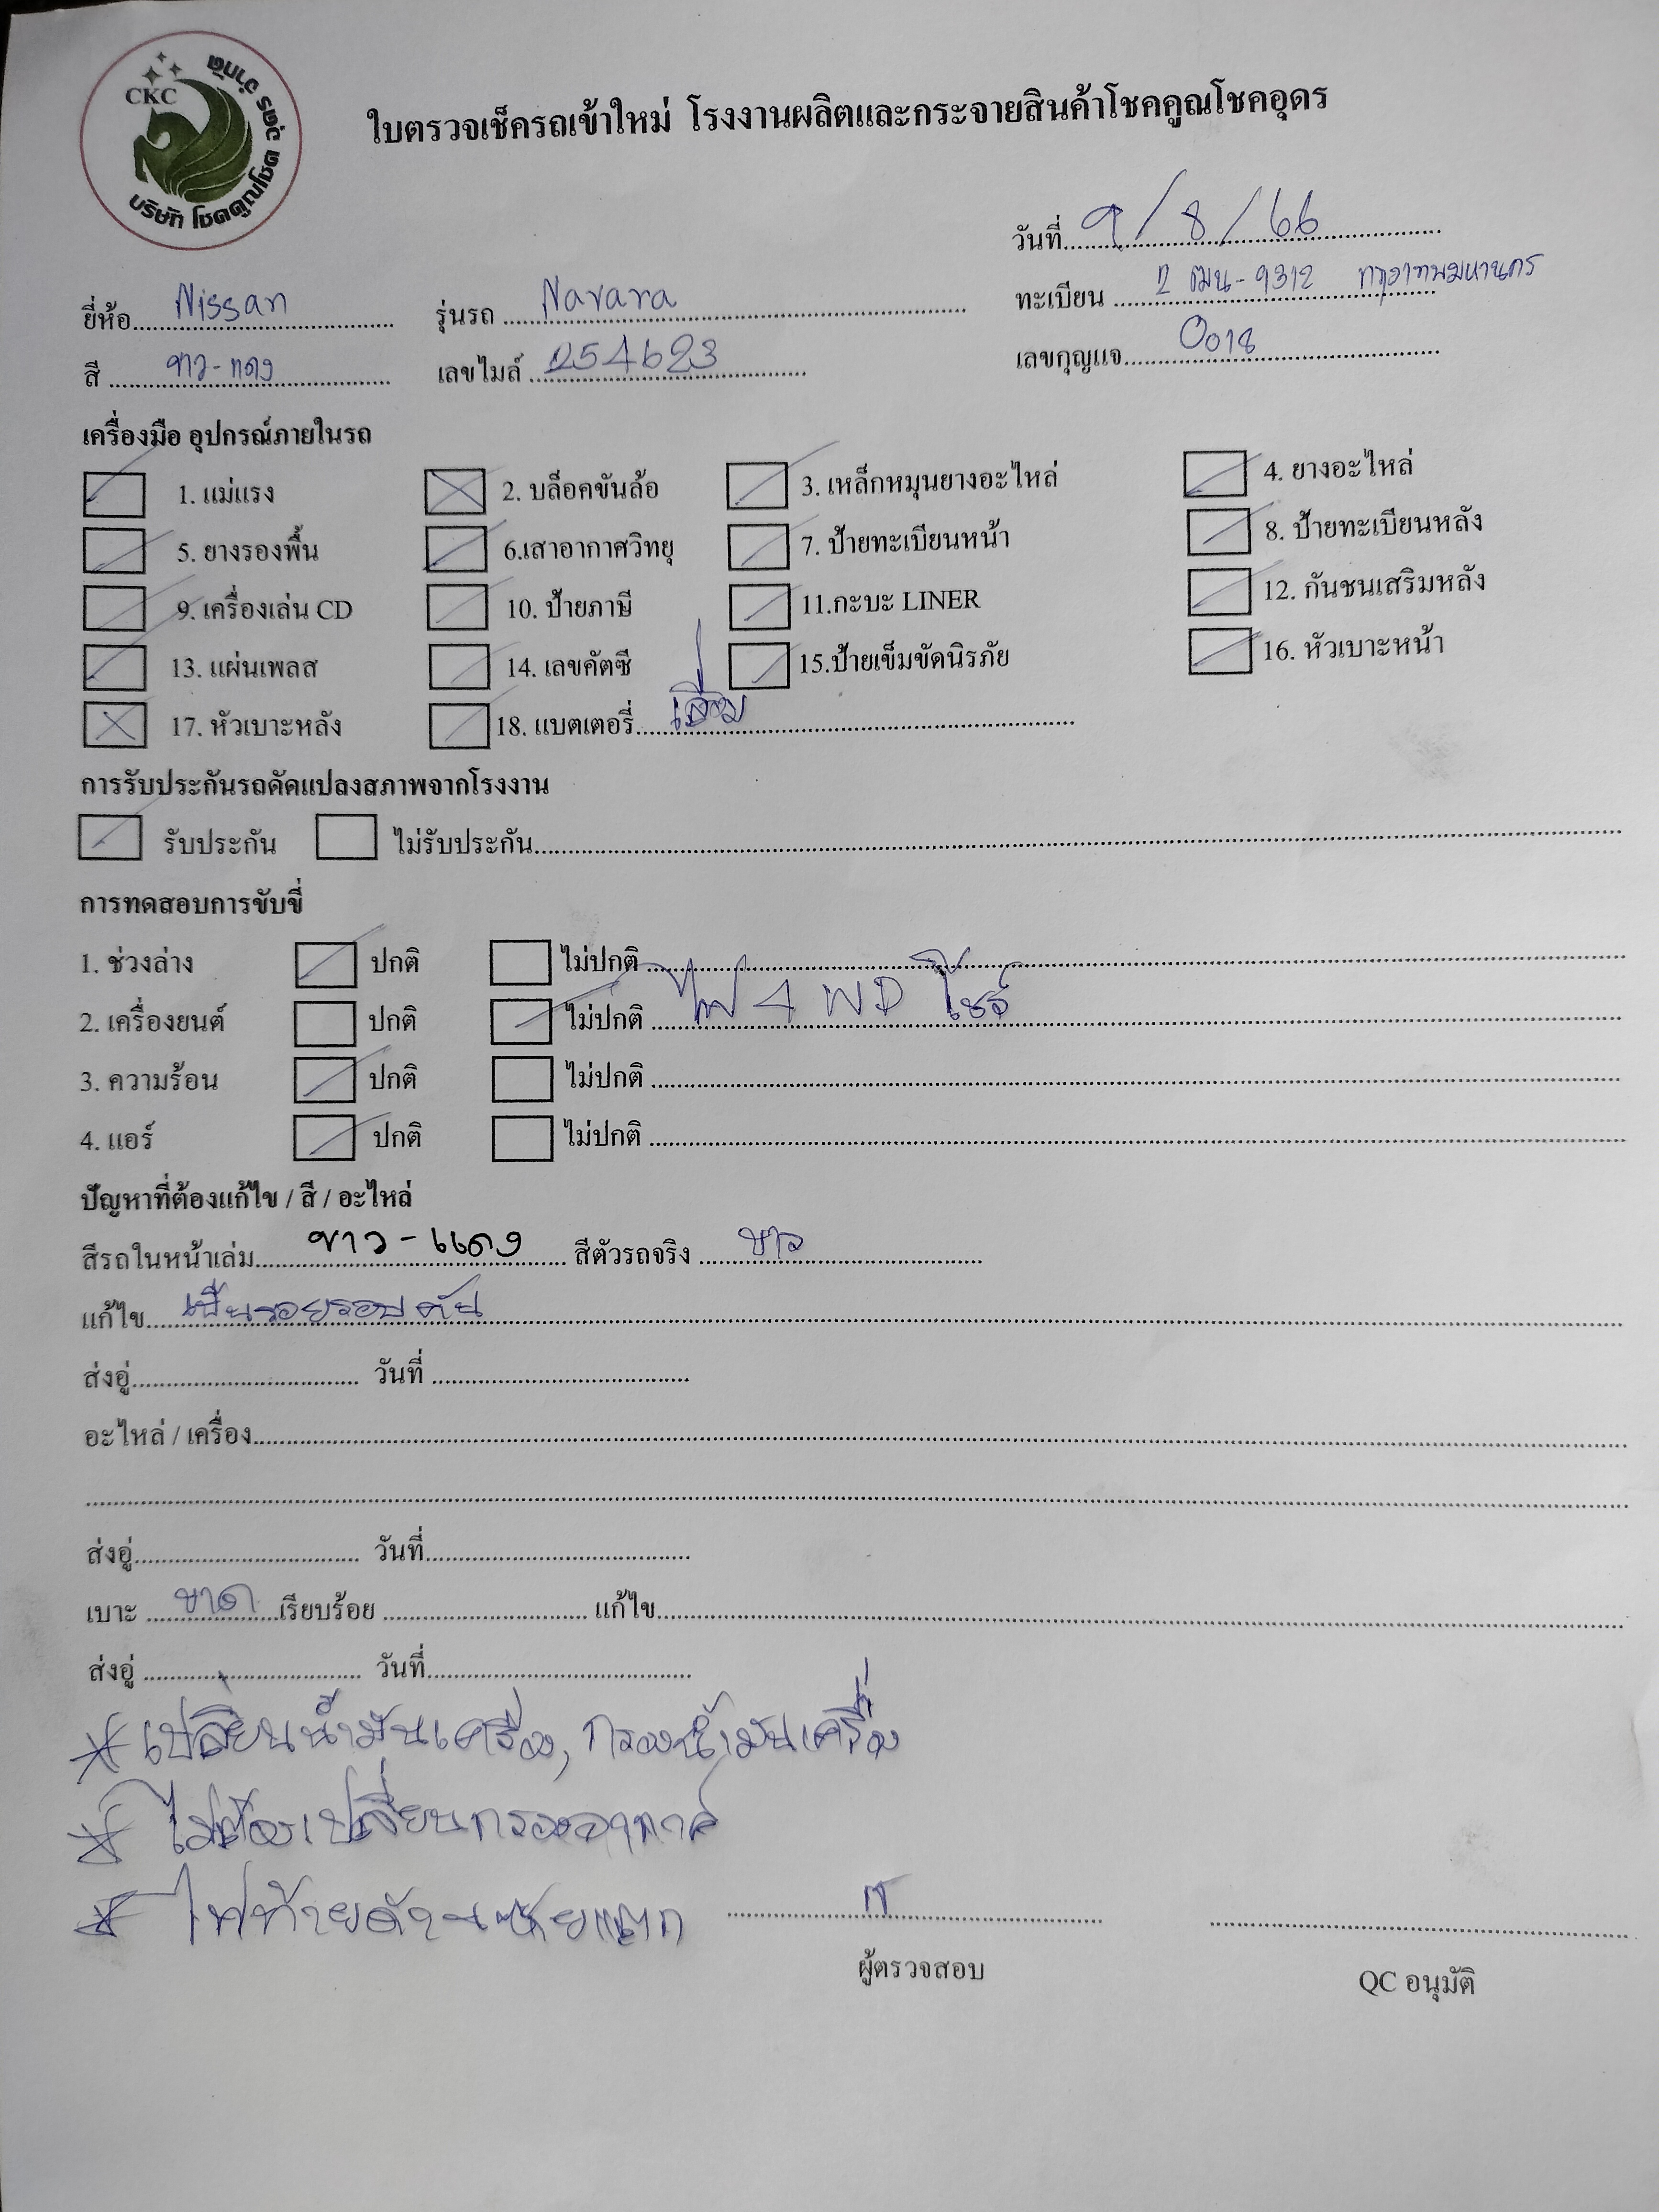 CKC
บริษัท โชคคูณโชค อุดร จำกัด
ใบตรวจเช็ครถเข้าใหม่ โรงงานผลิตและกระจายสินค้าโชคคูณโชคอุดร
วันที่ 9/8/66
ยี่ห้อ Nissan รุ่นรถ Navara ทะเบียน 2 ฒน-9312 กรุงเทพมหานคร
สี ขาว-แดง เลขไมล์ 254623 เลขกุญแจ 0018
เครื่องมือ อุปกรณ์ภายในรถ
1. แม่แรง 2. บล็อคขันล้อ 3. เหล็กหมุนยางอะไหล่ 4. ยางอะไหล่
5. ยางรองพื้น 6.เสาอากาศวิทยุ 7. ป้ายทะเบียนหน้า 8. ป้ายทะเบียนหลัง
9. เครื่องเล่น CD 10. ป้ายภาษี 11.กะบะ LINER 12. กันชนเสริมหลัง
13. แผ่นเพลส 14. เลขคัตซี 15.ป้ายเข็มขัดนิรภัย 16. หัวเบาะหน้า
17. หัวเบาะหลัง 18. แบตเตอรี่ เสื่อม
การรับประกันรถดัดแปลงสภาพจากโรงงาน
รับประกัน ไม่รับประกัน
การทดสอบการขับขี่
1. ช่วงล่าง ปกติ ไม่ปกติ
2. เครื่องยนต์ ปกติ ไม่ปกติ ไฟ 4 WD โชว์
3. ความร้อน ปกติ ไม่ปกติ
4. แอร์ ปกติ ไม่ปกติ
ปัญหาที่ต้องแก้ไข / สี / อะไหล่
สีรถในหน้าเล่ม ขาว-แดง สีตัวรถจริง ขาว
แก้ไข เป็นรอยรอบคัน
ส่งอู่ วันที่
อะไหล่ / เครื่อง
ส่งอู่ วันที่
เบาะ ขาด เรียบร้อย แก้ไข
ส่งอู่ วันที่
* เปลี่ยนน้ำมันเครื่อง, กรองน้ำมันเครื่อง
* ไม่ต้องเปลี่ยนกรองอากาศ
* ไฟท้ายด้านซ้ายแตก
ผู้ตรวจสอบ QC อนุมัติ